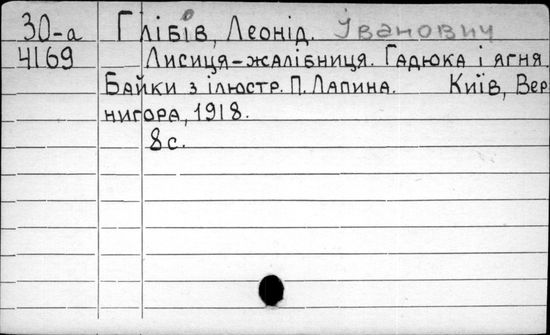 30-а Глібів, Леонід. Іванович
4169 Лисиця-жалібниця. Гадюка і ягня.
Байки з ілюстр. П. Лапина. Київ, Вер
нигора, 1918.
8 с.